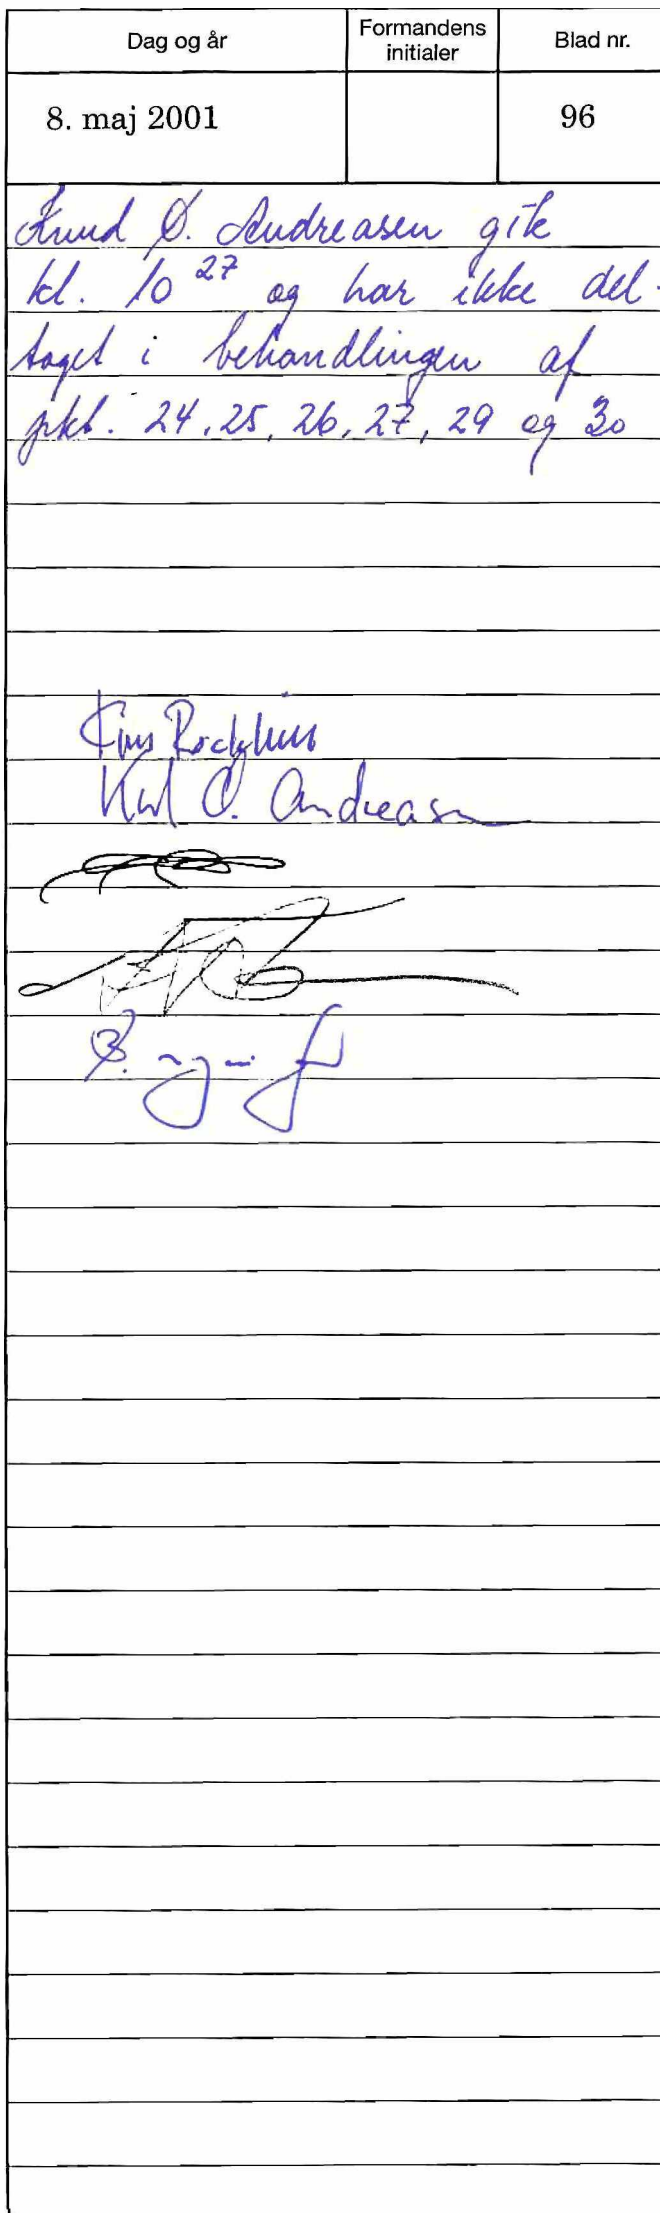 Dag og år
Formandens
initialer
Blad nr.
8. maj 2001
96
Knud Ø. Andreasen gik
kl. 10 27 og har ikke del-
taget i behandlingen af
pkt. 24, 25, 26, 27, 29 og 30
Knud Ø. Andreasen